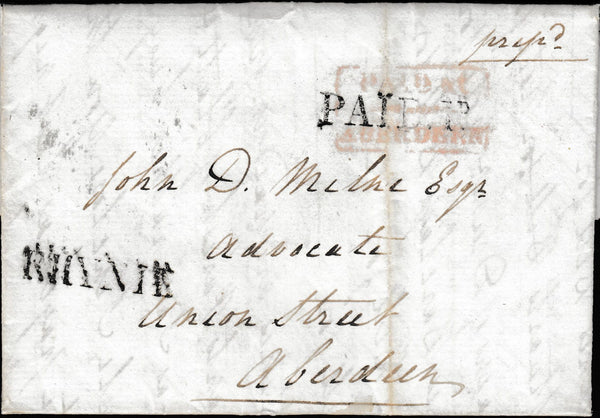 prepd
PAID AT
ABERDEEN
PAID
John D. Milne Esqr
Advocate
RHYNIE
Union Street
Aberdeen